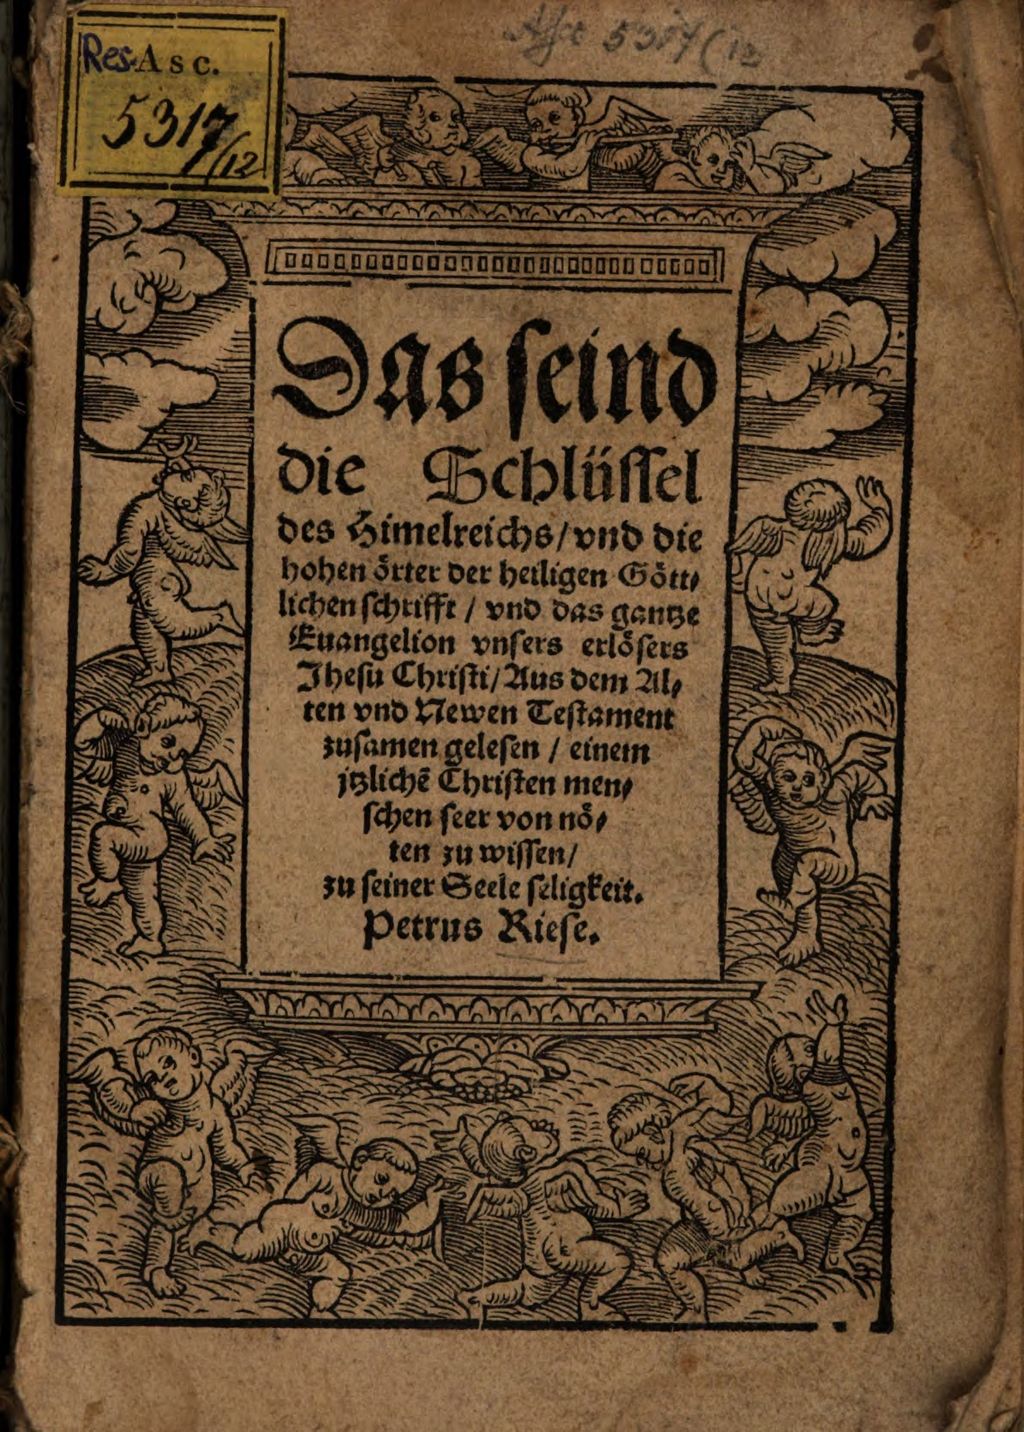 Res. Asc.
5317/12
5317(12
Das seind
die Schlüssel
des Himelreichs/ vnd die
hohen örter der heiligen Gött⸗
lichen schrifft / vnd das gantze
Euangelion vnsers erlösers
Jhesu Christi/ Aus dem Al⸗
ten vnd Newen Testament
zusamen gelesen / einem
jtzlichē Christen men⸗
schen seer von nö⸗
ten zu wissen/
zu seiner Seele seligkeit.
Petrus Riese.